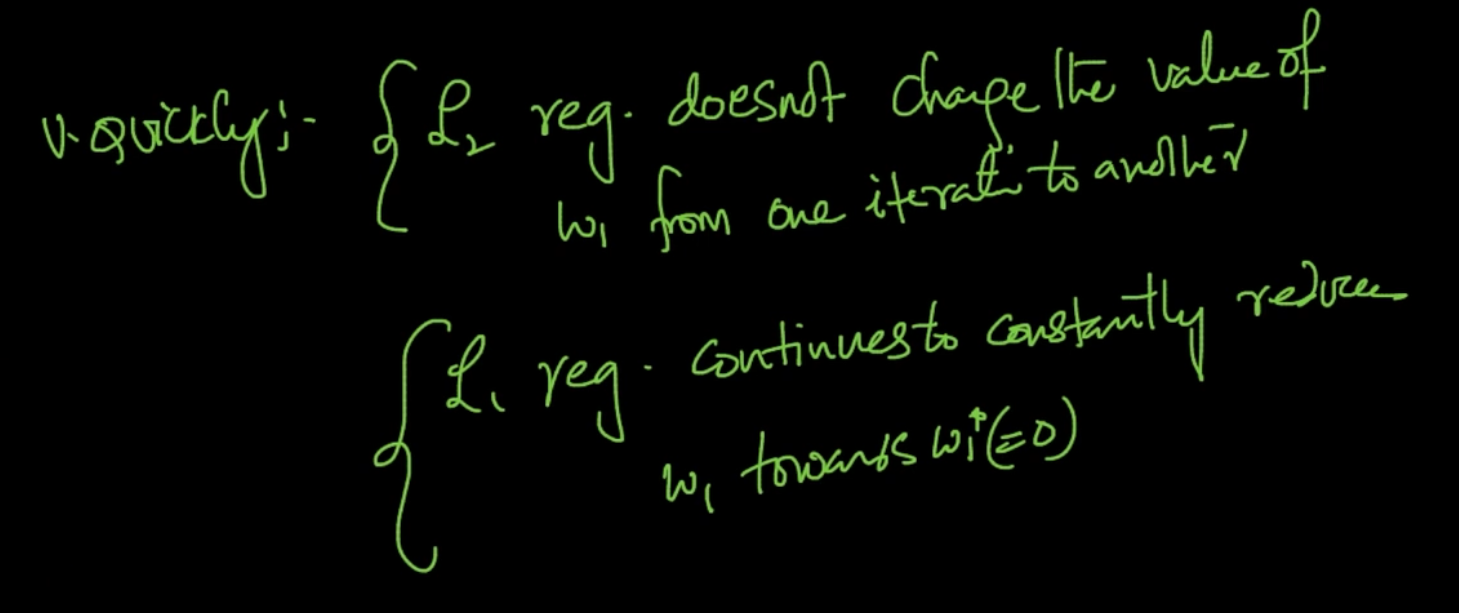 v. quickly:- { L₂ reg. doesnot change the value of
w₁ from one iterati to another
{ L₁ reg. continues to constantly reduce
w₁ towards w₁*(=0)